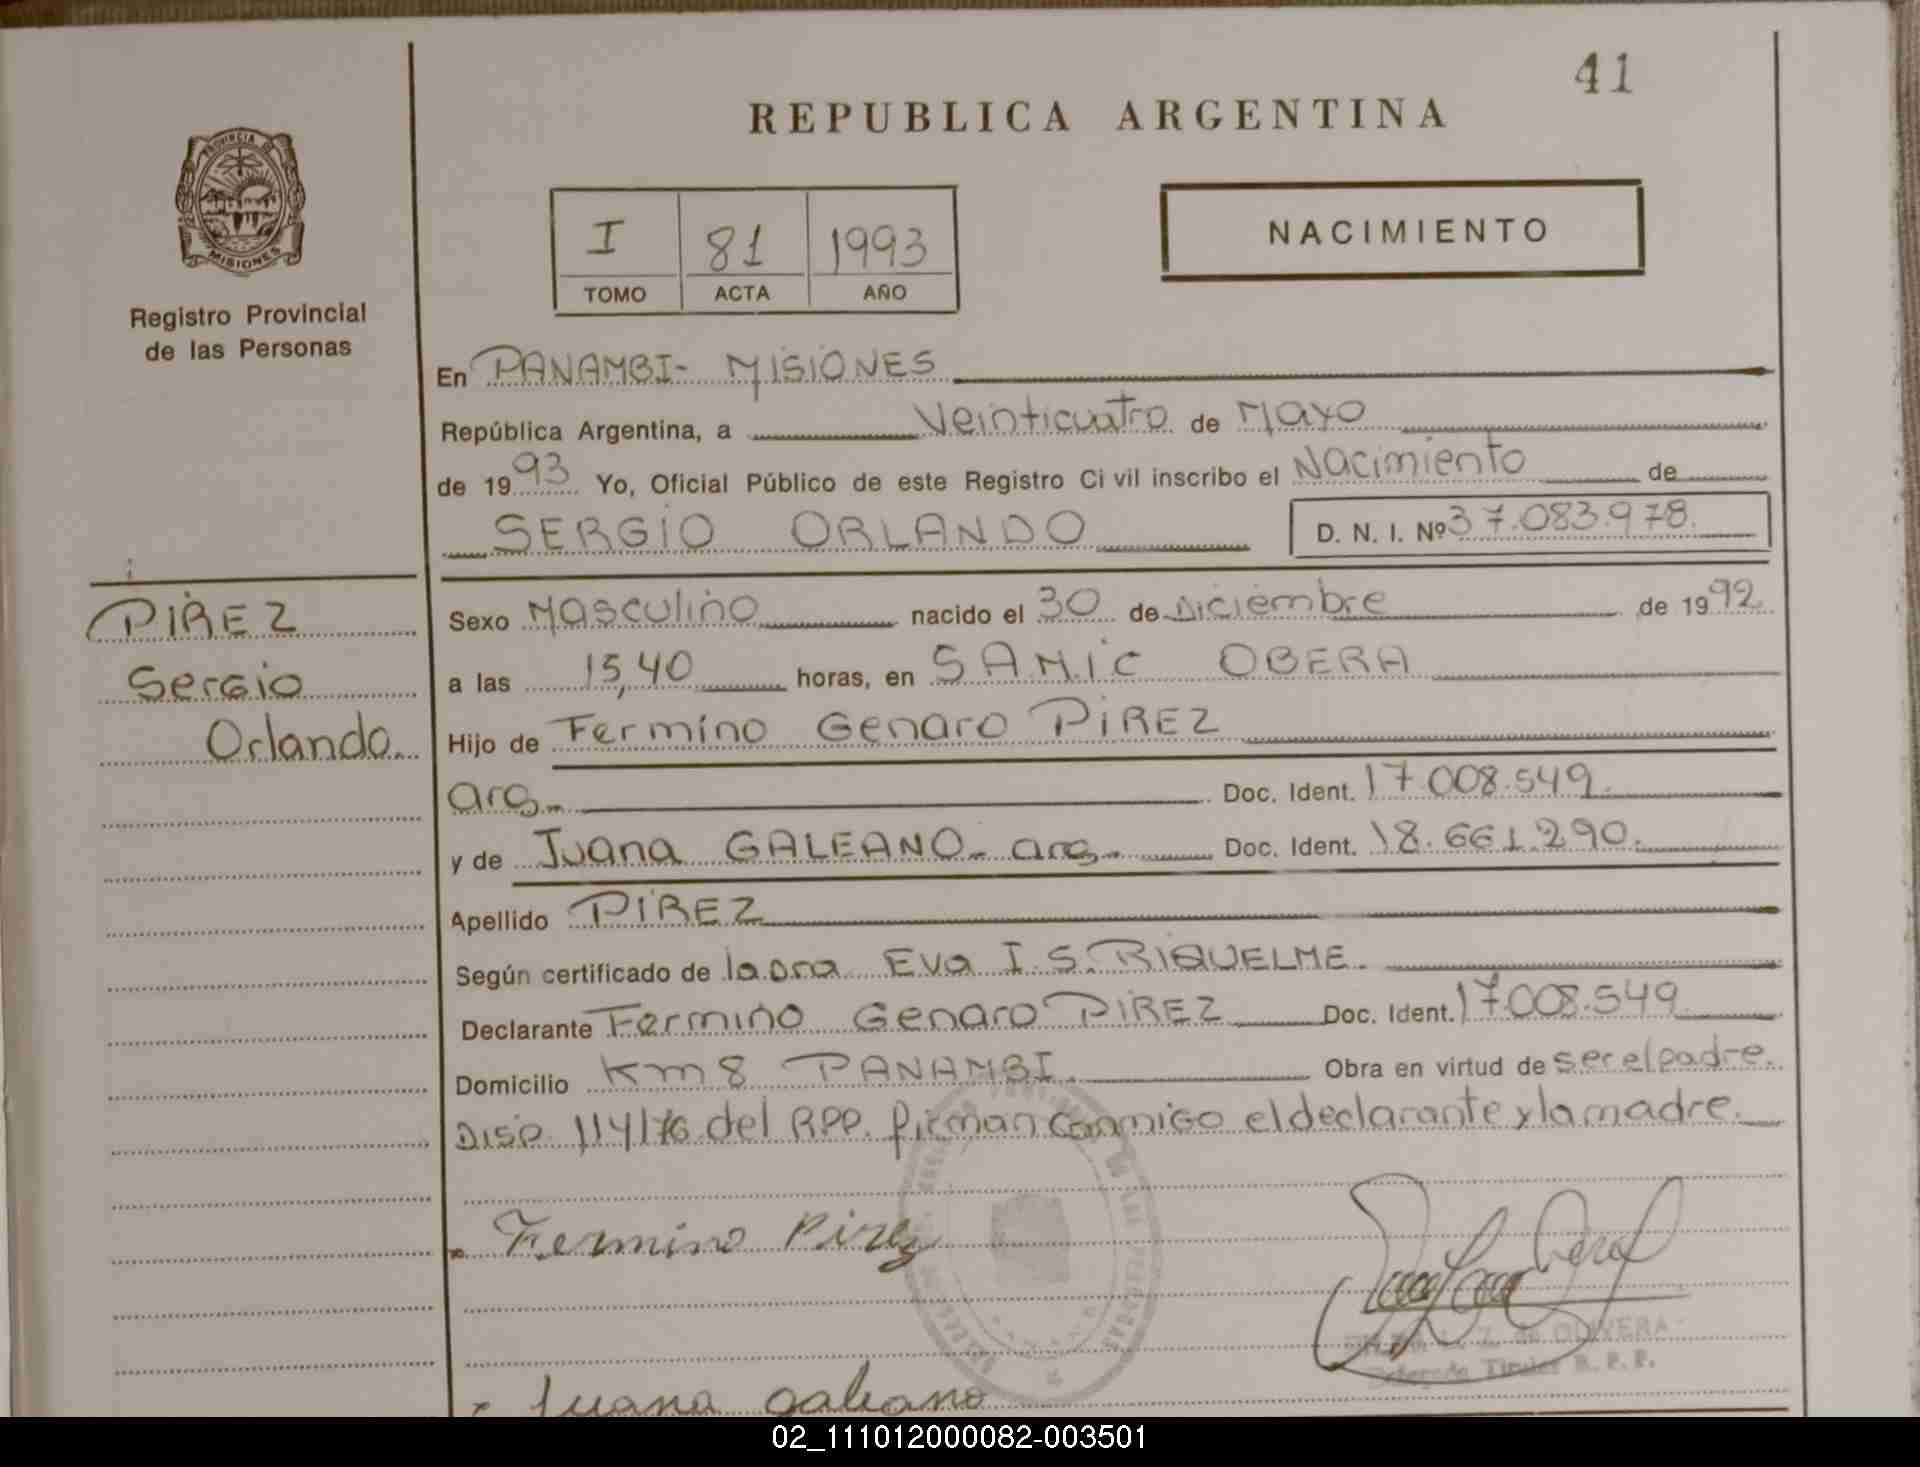 41
REPUBLICA ARGENTINA
PROVINCIA DE MISIONES
Registro Provincial
de las Personas
I 81 1993
TOMO ACTA AÑO
NACIMIENTO
En PANAMBI- MISIONES
República Argentina, a Veinticuatro de Mayo
de 1993 Yo, Oficial Público de este Registro Civil inscribo el Nacimiento de
SERGIO ORLANDO D. N. I. Nº 37.083.978.
PIREZ
Sergio
Orlando.
Sexo Masculino nacido el 30 de Diciembre de 1992.
a las 15,40 horas, en S.A.M.I.C OBERA
Hijo de Fermino Genaro PIREZ
arg. Doc. Ident. 17.008.549.
y de Juana GALEANO- arg. Doc. Ident. 18.661.290.
Apellido PIREZ
Según certificado de la Dra Eva I. S. RIQUELME.
Declarante Fermino Genaro PIREZ Doc. Ident. 17.008.549
Domicilio Km 8 PANAMBI. Obra en virtud de ser el padre.
Disp. 114/76 del RPP. firman conmigo el declarante y la madre.
Fermino Pirez
de OLIVERA
Titular R. P. P.
Juana Galeano
02_111012000082-003501